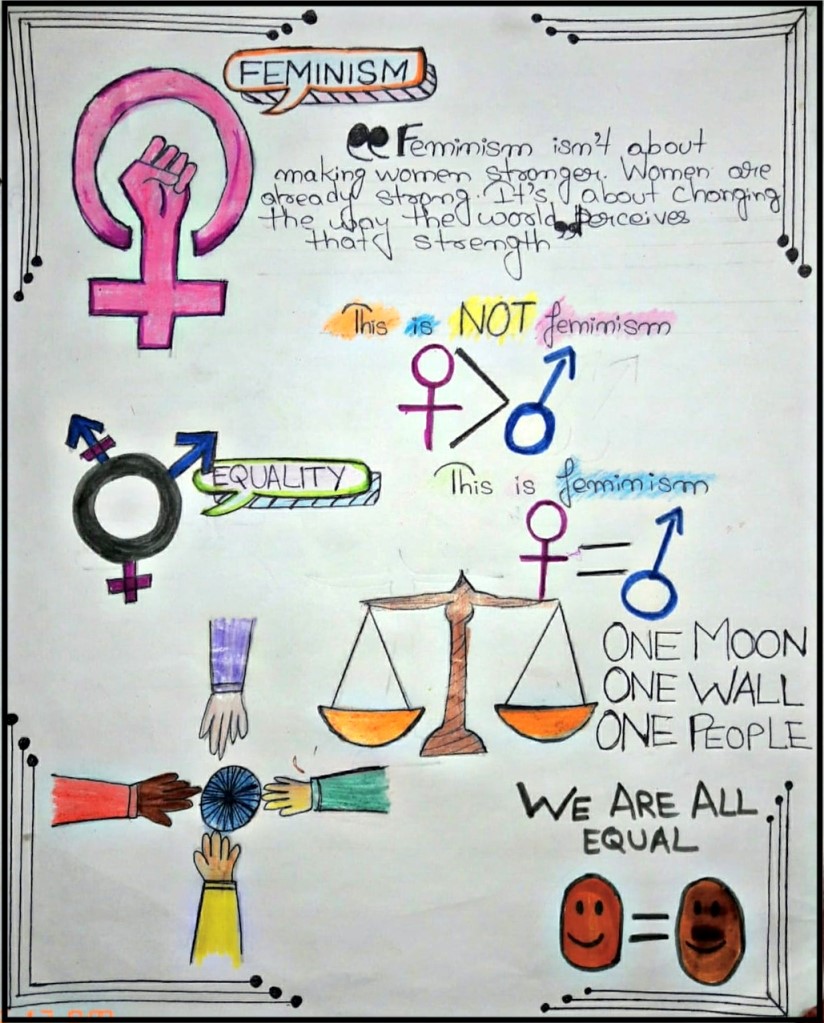 FEMINISM
“Feminism isn't about
making women stronger. Women are
already strong. It's about changing
the way the world perceives
that strength”
This is NOT feminism
EQUALITY
This is feminism
ONE MOON
ONE WALL
ONE PEOPLE
WE ARE ALL
EQUAL